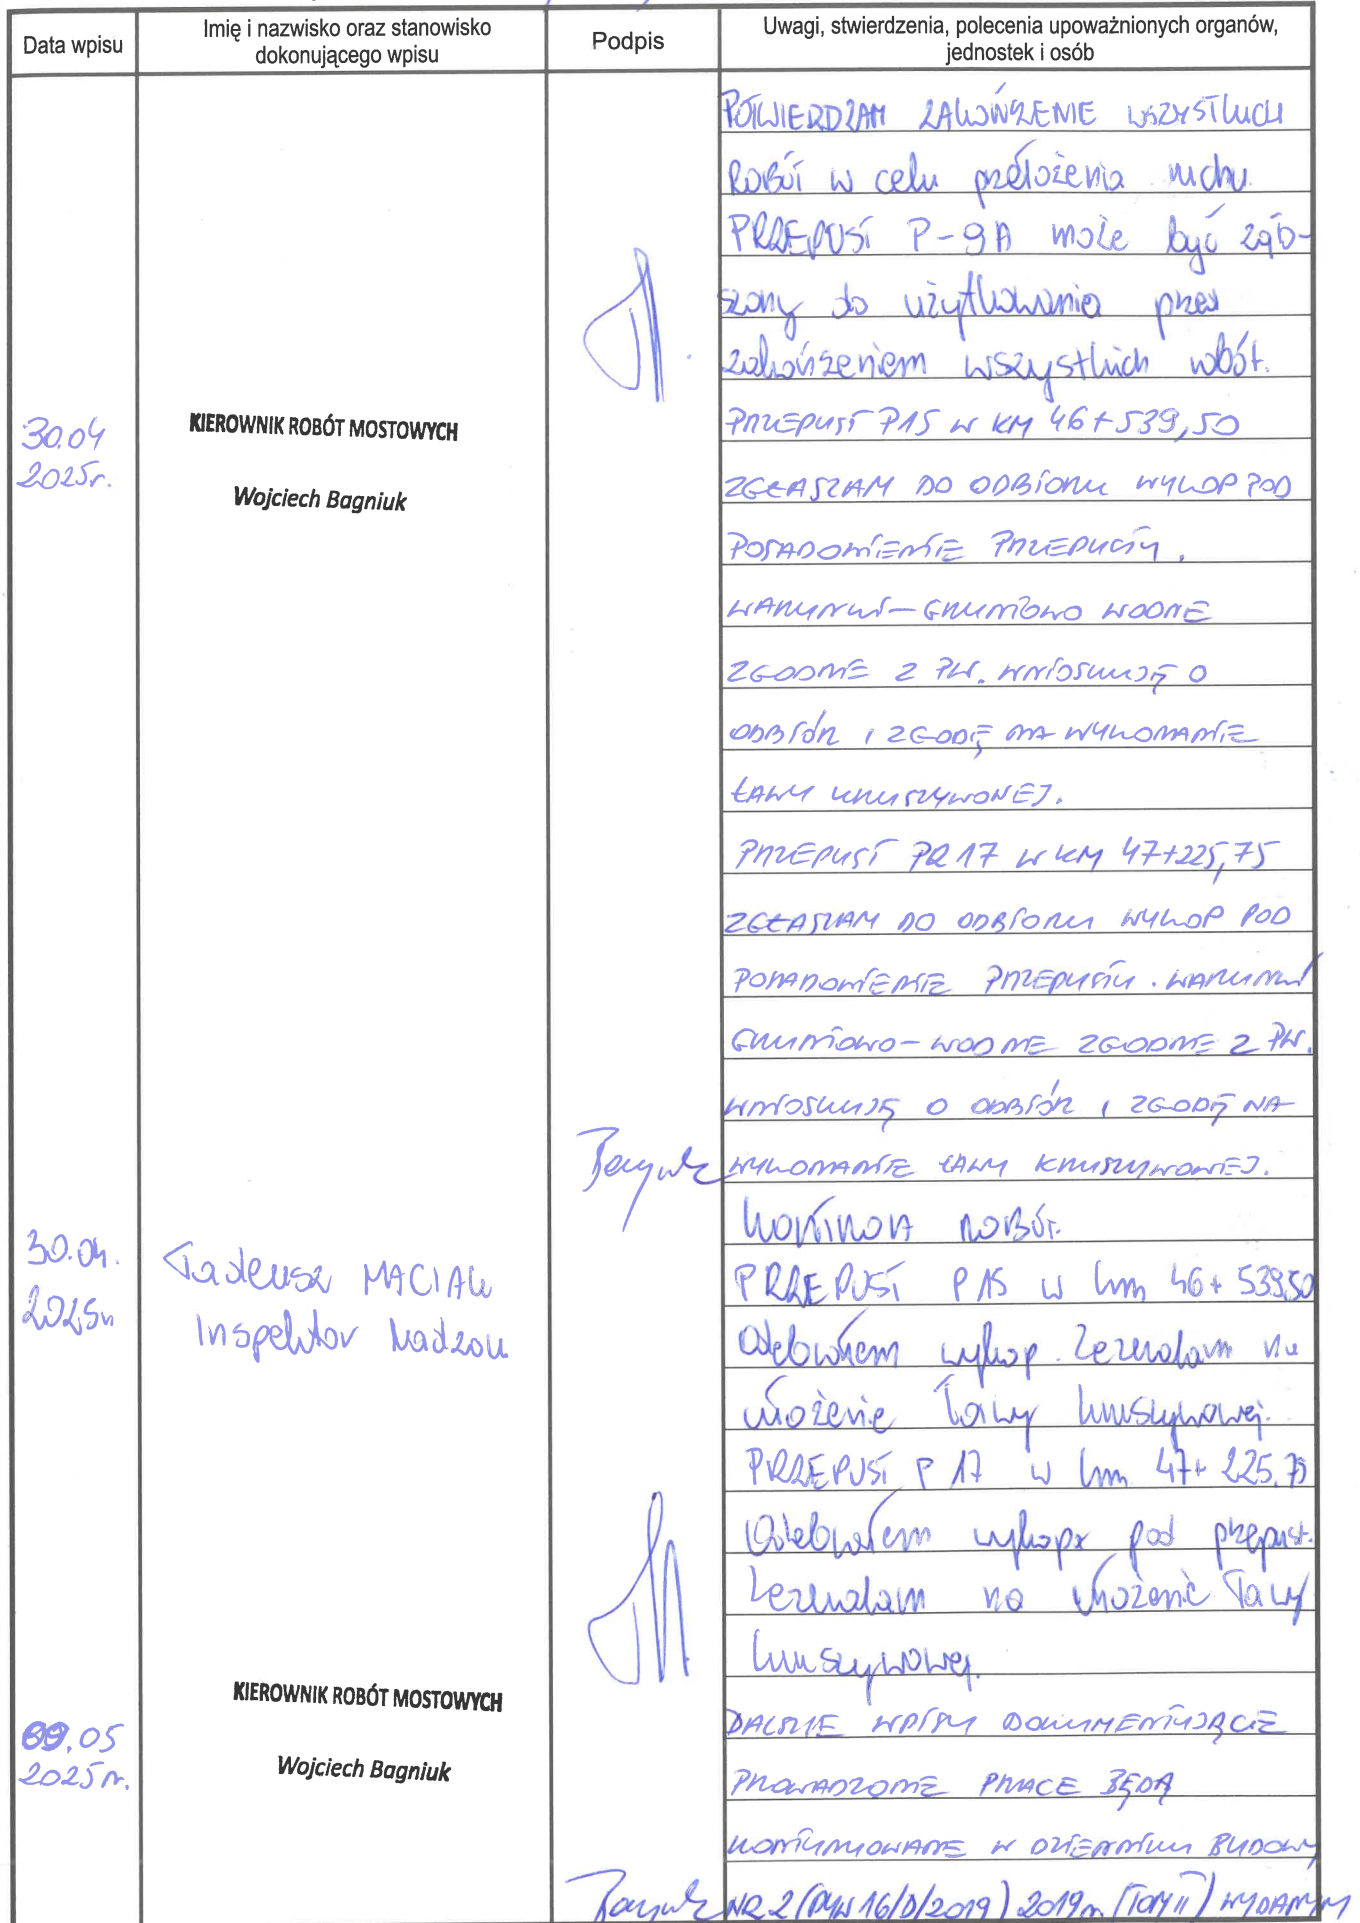 Data wpisu
Imię i nazwisko oraz stanowisko
dokonującego wpisu
Podpis
Uwagi, stwierdzenia, polecenia upoważnionych organów,
jednostek i osób
POTWIERDZAM ZAKOŃCZENIE WSZYSTKICH
ROBÓT w celu przełożenia ruchu.
PRZEPUST P-9A może być zgło-
szony do użytkowania przed
zakończeniem wszystkich robót.
30.04
2025r.
KIEROWNIK ROBÓT MOSTOWYCH
Wojciech Bagniuk
PRZEPUST P15 W KM 46+539,50
ZGŁASZAM DO ODBIORU WYKOP POD
POSADOWIENIE PRZEPUSTU.
WARUNKI-GRUNTOWO WODNE
ZGODNE Z PW. WNIOSKUJĘ O
ODBIÓR I ZGODĘ NA WYKONANIE
ŁAWY KRUSZYWONEJ.
PRZEPUST PR17 W KM 47+225,75
ZGŁASZAM DO ODBIORU WYKOP POD
POSADOWIENIE PRZEPUSTU. WARUNKI
GRUNTOWO-WODNE ZGODNE Z PW.
WNIOSKUJĘ O ODBIÓR I ZGODĘ NA
WYKONANIE ŁAWY KRUSZYWOWEJ.
30.04.
2025r
Tadeusz MACIAK
Inspektor Nadzoru
KONTROLA ROBÓT.
PRZEPUST P15 w km 46+539,50
Odebrałem wykop. Zezwalam na
ułożenie ławy kruszywowej.
PRZEPUST P17 w km 47+225,75
Odebrałem wykop pod przepust.
Zezwalam na ułożenie ławy
kruszywowej.
09.05
2025r.
KIEROWNIK ROBÓT MOSTOWYCH
Wojciech Bagniuk
DALSZE WPISY DOKUMENTUJĄCE
PROWADZONE PRACE BĘDĄ
KONTYNUOWANE W DZIENNIKU BUDOWY
NR 2 16/D/2019) 2019r. (TOM II) WYDANYM